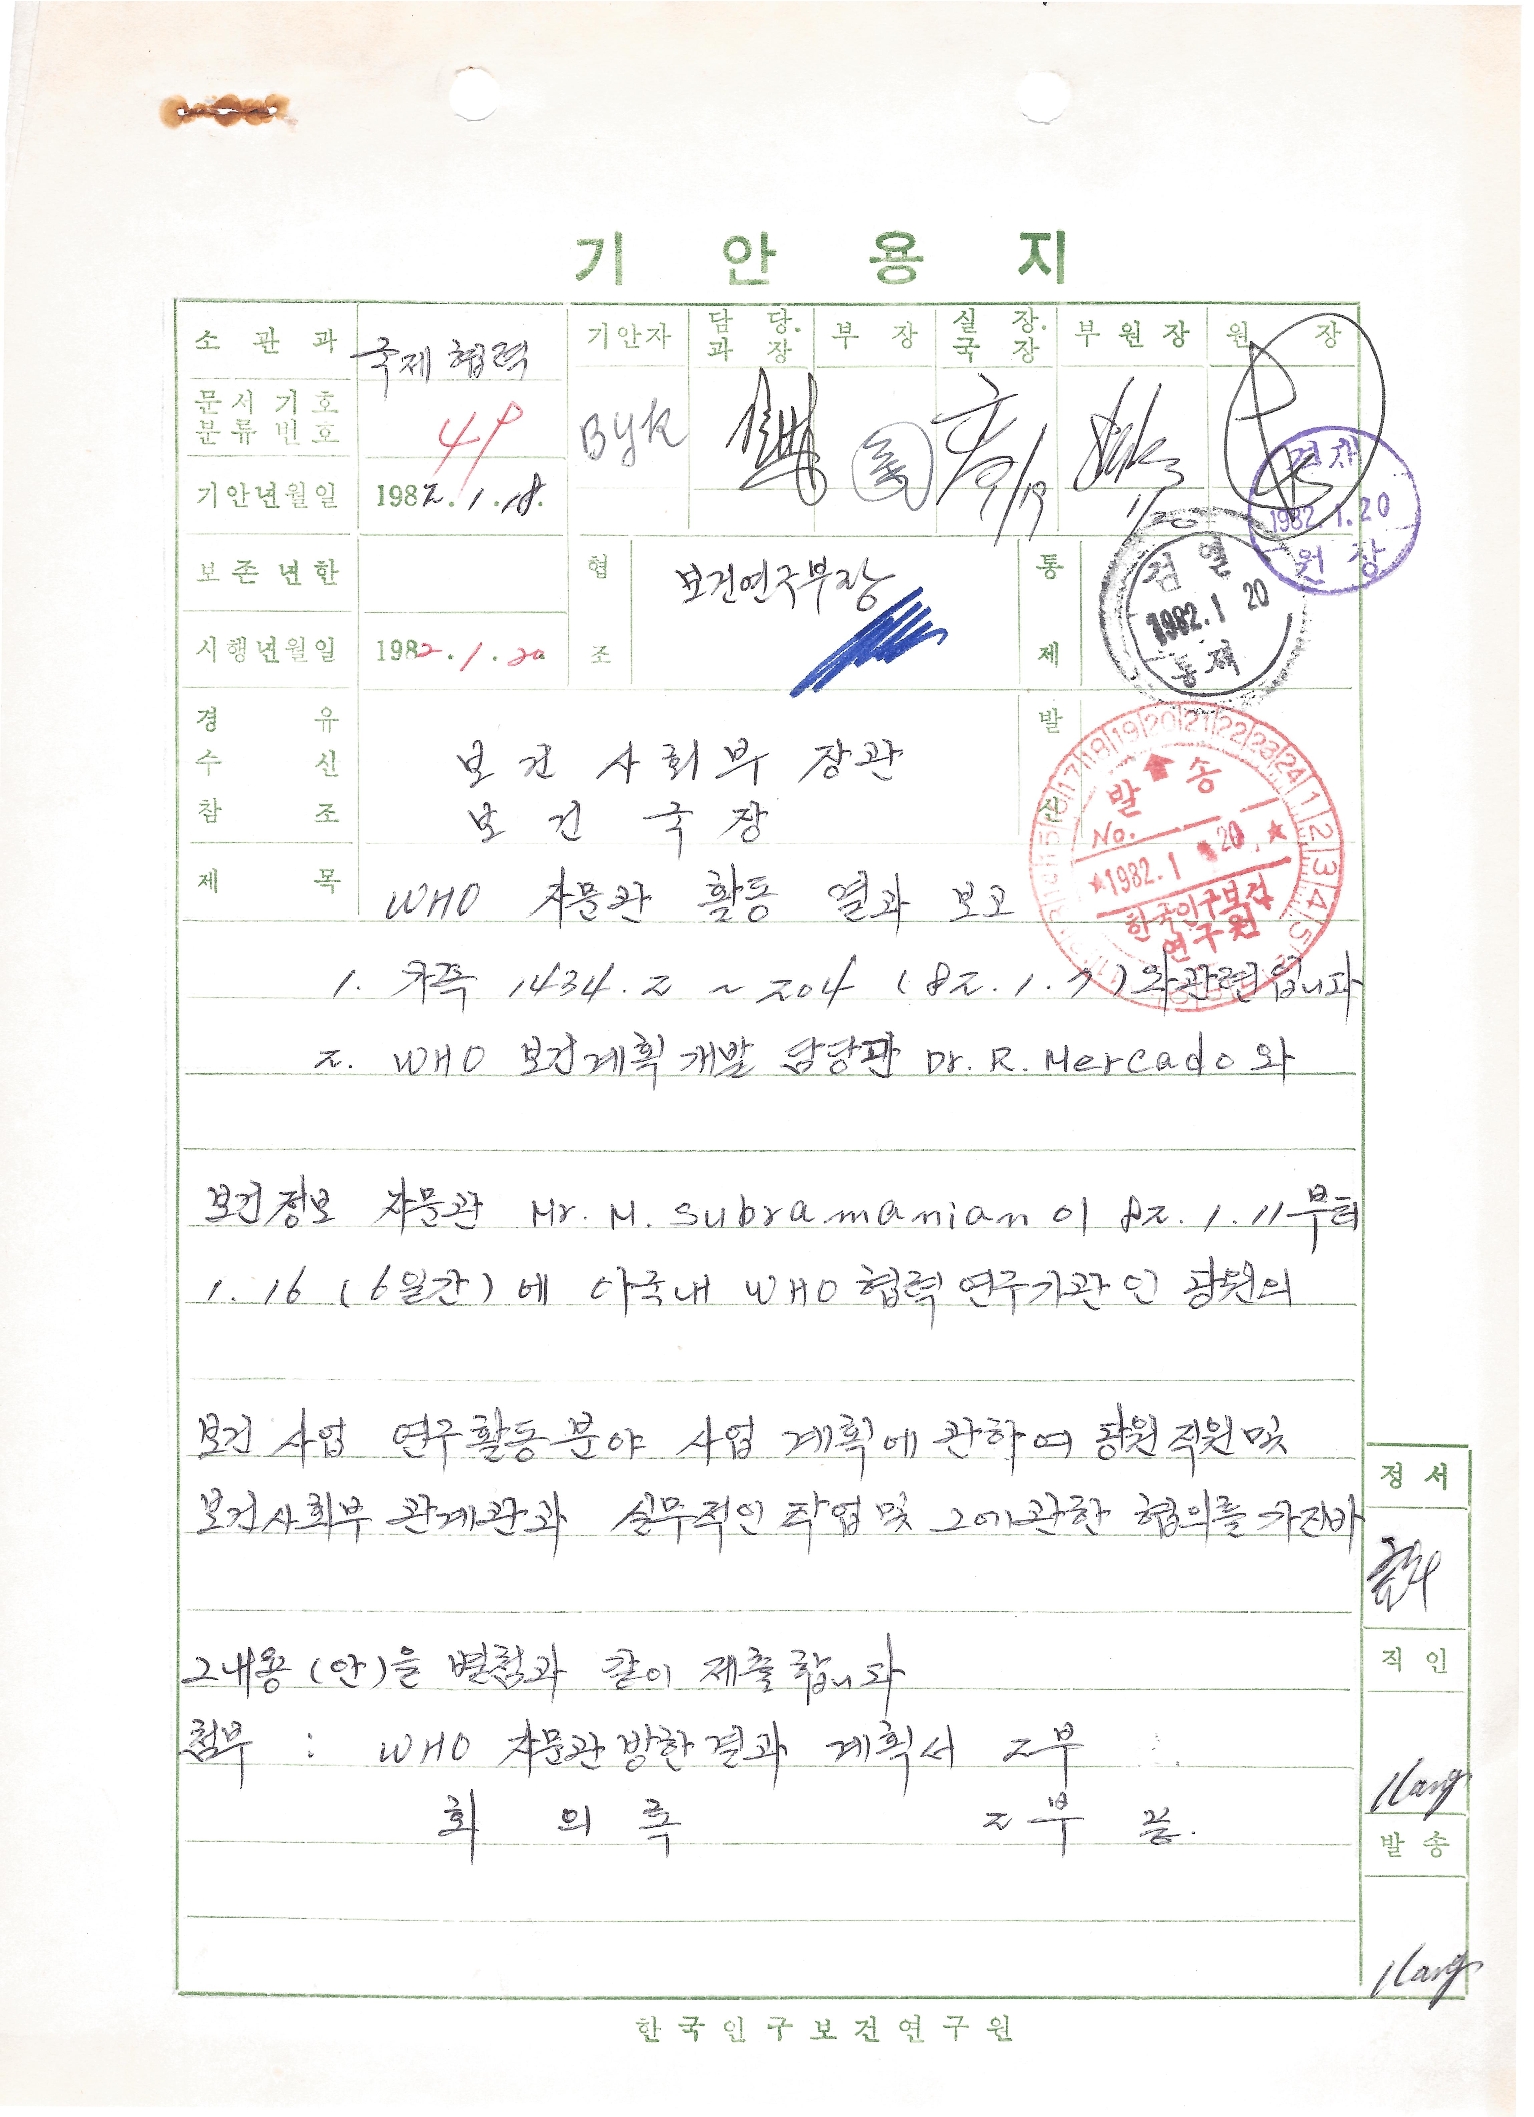 기 안 용 지
소 관 과 국제 협력 기안자 담 당. 과 장 부 장 실 장. 국 장 부 원 장 원 장
문서기호 분류번호 49 BYK
기안년월일 1982.1.18. 1/19 1/20
검사 1982.1.20 원장
보존년한 협조 보건연구부장 통제
검열 1982.1 20 통제
시행년월일 1982.1.20
경 유 발신
수 신 보 건 사 회 부 장 관
참 조 보 건 국 장
발송 No. 1982.1 20. 한국인구보건연구원
제 목 WHO 자문관 활동 결과 보고
1. 가족 1434.2 ~ 204 (82.1.7)와 관련입니다
2. WHO 보건계획개발 담당관 Dr. R. Mercado 와
보건정보 자문관 Mr. M. Subramanian 이 82.1.11부터
1.16 (6일간)에 아국내 WHO 협력 연구기관인 당원의
보건 사업 연구활동분야 사업 계획에 관하여 당원직원 및
보건사회부 관계관과 실무적인 작업 및 그에관한 협의를 가진바
그내용(안)을 별첨과 같이 제출합니다
첨부 : WHO 자문관방한결과 계획서 2부
회 의 록 2부 끝.
정 서
직 인
Kang
발 송
Kang
한국인구보건연구원